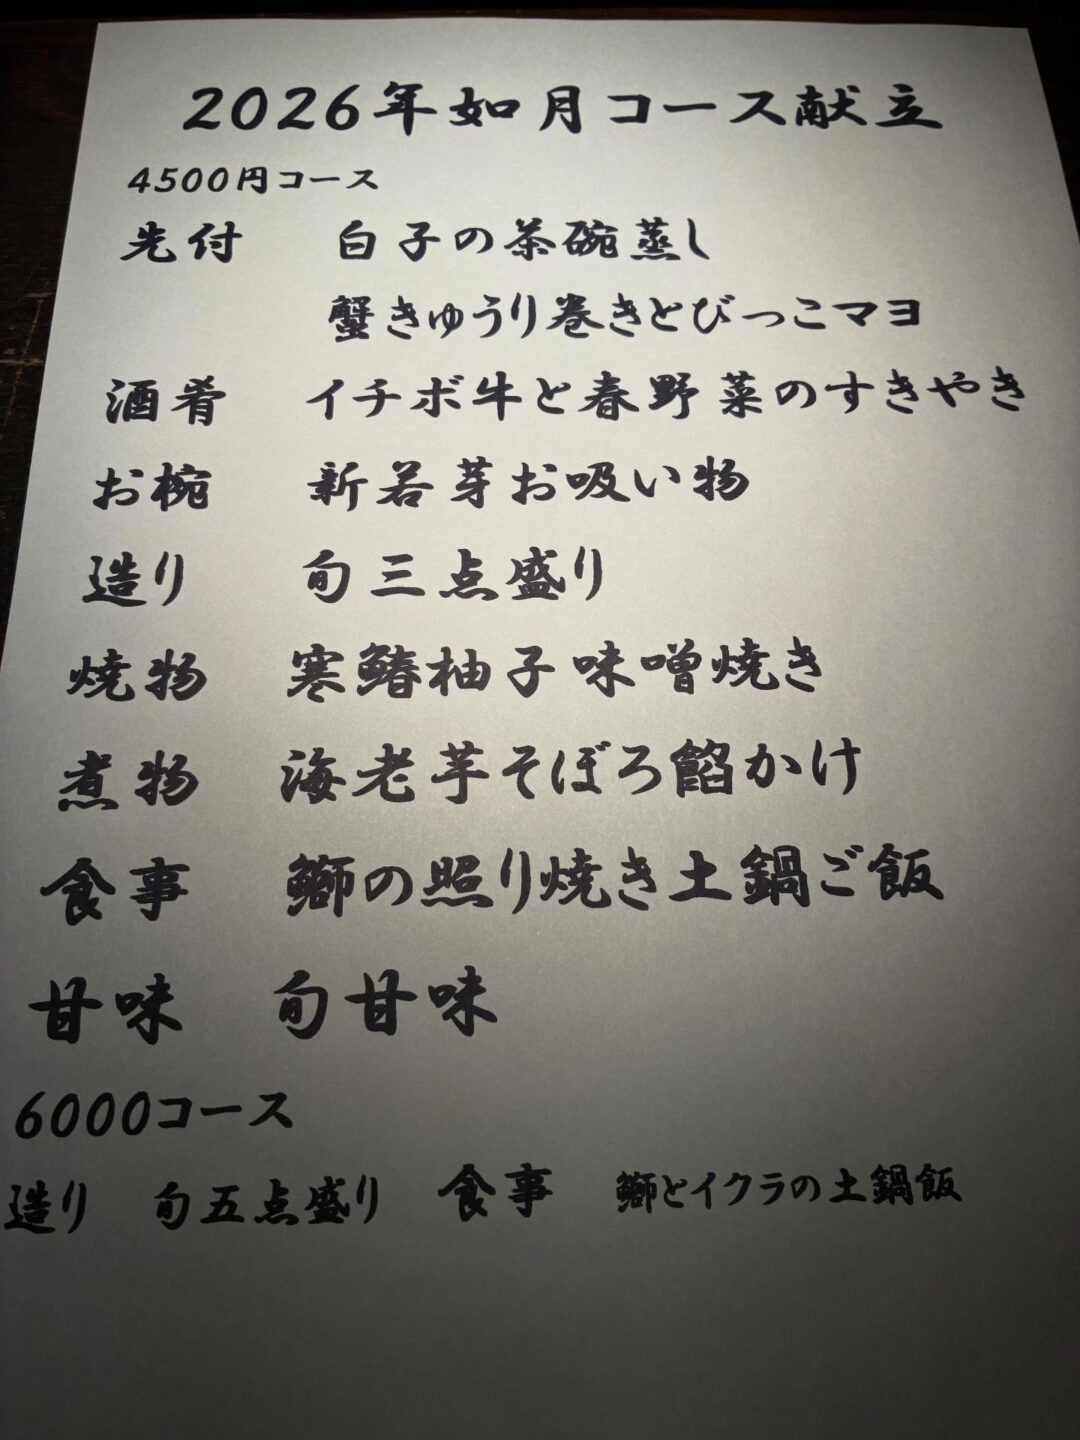 2026年如月コース献立
4500円コース
先付 白子の茶碗蒸し
蟹きゅうり巻きとびっこマヨ
酒肴 イチボ牛と春野菜のすきやき
お椀 新若芽お吸い物
造り 旬三点盛り
焼物 寒鰆柚子味噌焼き
煮物 海老芋そぼろ餡かけ
食事 鰤の照り焼き土鍋ご飯
甘味 旬甘味
6000コース
造り 旬五点盛り 食事 鰤とイクラの土鍋飯